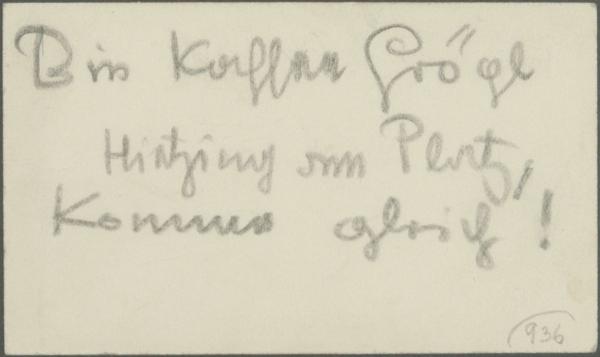 Bin Kaffee Gröpl
Hietzing am Platz,
Komme gleich!
936